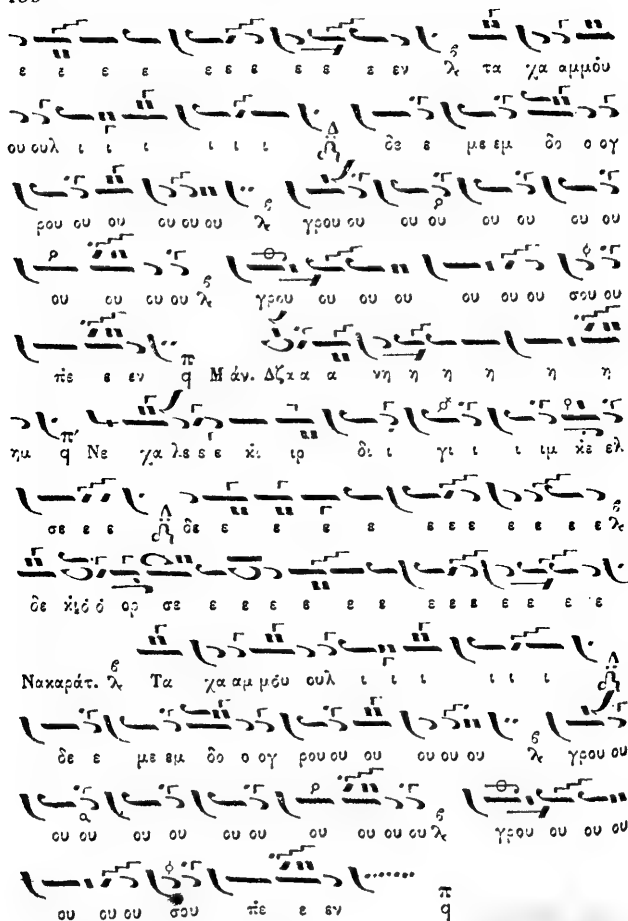 ε ε ε ε ε ε ε ε ε ε εν λ τα χα αμμόυ
ου ουλ ι ι ι ι ι ι Δ δε ε με εμ δο ο ογ
ρου ου ου ου ου ου λ γρου ου ου ου ου ου ου ου
ου ου ου ου λ γρου ου ου ου ου ου ου σου ου
πε ε εν π q Μάν. Δζκ α α νη η η η η η
ημ π' q Νε χα λε ε ε κι ιρ δι ι γι ι ι ιμ κε ελ
σε ε ε Δ δε ε ε ε ε ε ε ε ε ε ε ε λ
δε κιό ό ορ σε ε ε ε ε ε ε ε ε ε ε ε
Νακαράτ. λ Τα χα αμ μόυ ουλ ι ι ι ι ι ι Δ
δε ε με εμ δο ο ογ ρου ου ου ου ου ου λ γρου ου
ου ου ου ου ου ου ου ου ου ου λ γρου ου ου ου
ου ου ου σου πε ε εν π q